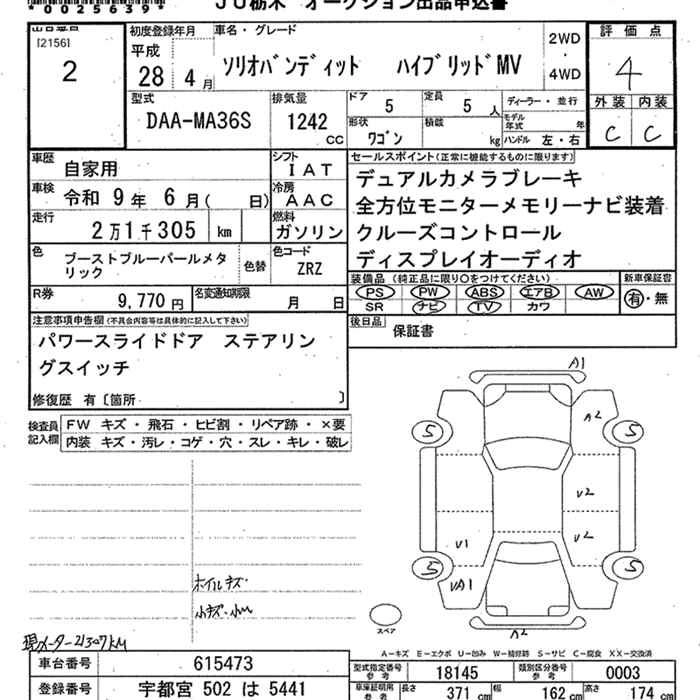 *0025639*
JU栃木 オークション出品申込書
[2156]
2
初度登録年月
平成
28年 4月
車名・グレード
ソリオバンディット ハイブリッドMV
2WD
・
4WD
評価点
4
外装 内装
C C
型式
DAA-MA36S
排気量
1242
CC
ドア
5
定員
5 人
形状
ワゴン
積載
kg
ディーラー・並行
モデル年式 年
ハンドル 左・右
車歴
自家用
シフト
IAT
車検
令和 9年 6月( 日)
冷房
AAC
走行
2万1千305 km
燃料
ガソリン
色
ブーストブルーパールメタリック
色替
色コード
ZRZ
R券
9,770円
名変通知期限
月 日
セールスポイント(正常に機能するものに限ります)
デュアルカメラブレーキ
全方位モニターメモリーナビ装着
クルーズコントロール
ディスプレイオーディオ
装備品 (純正品に限り〇をつけてください)
PS PW ABS エアB AW
SR ナビ TV カワ
新車保証書
有・無
後日品
保証書
注意事項申告欄(不具合内容等は具体的に記入して下さい)
パワースライドドア ステアリン
グスイッチ
修復歴 有〔箇所 〕
検査員記入欄
FW キズ・飛石・ヒビ割・リペア跡・×要
内装 キズ・汚レ・コゲ・穴・スレ・キレ・破レ
A1
A2
S
S
U2
U1
U2
S
S
UA1
A2
スペア
ホイルキズ
小キズ・小凹
現メーター21307KM
A-キズ E-エクボ U-凹み W-補修跡 S-サビ C-腐食 XX-交換済
車台番号
615473
登録番号
宇都宮 502 は 5441
型式指定番号
参考
18145
類別区分番号
参考
0003
車庫証明用
参考
長さ
371 cm
幅
162 cm
高さ
174 cm